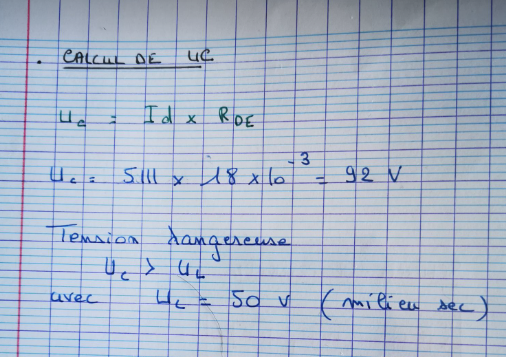 . CALCUL DE UC
Uc = Id x RDE
Uc = 5111 x 18 x 10⁻³ = 92 V
Tension dangereuse
Uc > UL
avec UL = 50 V (milieu sec)